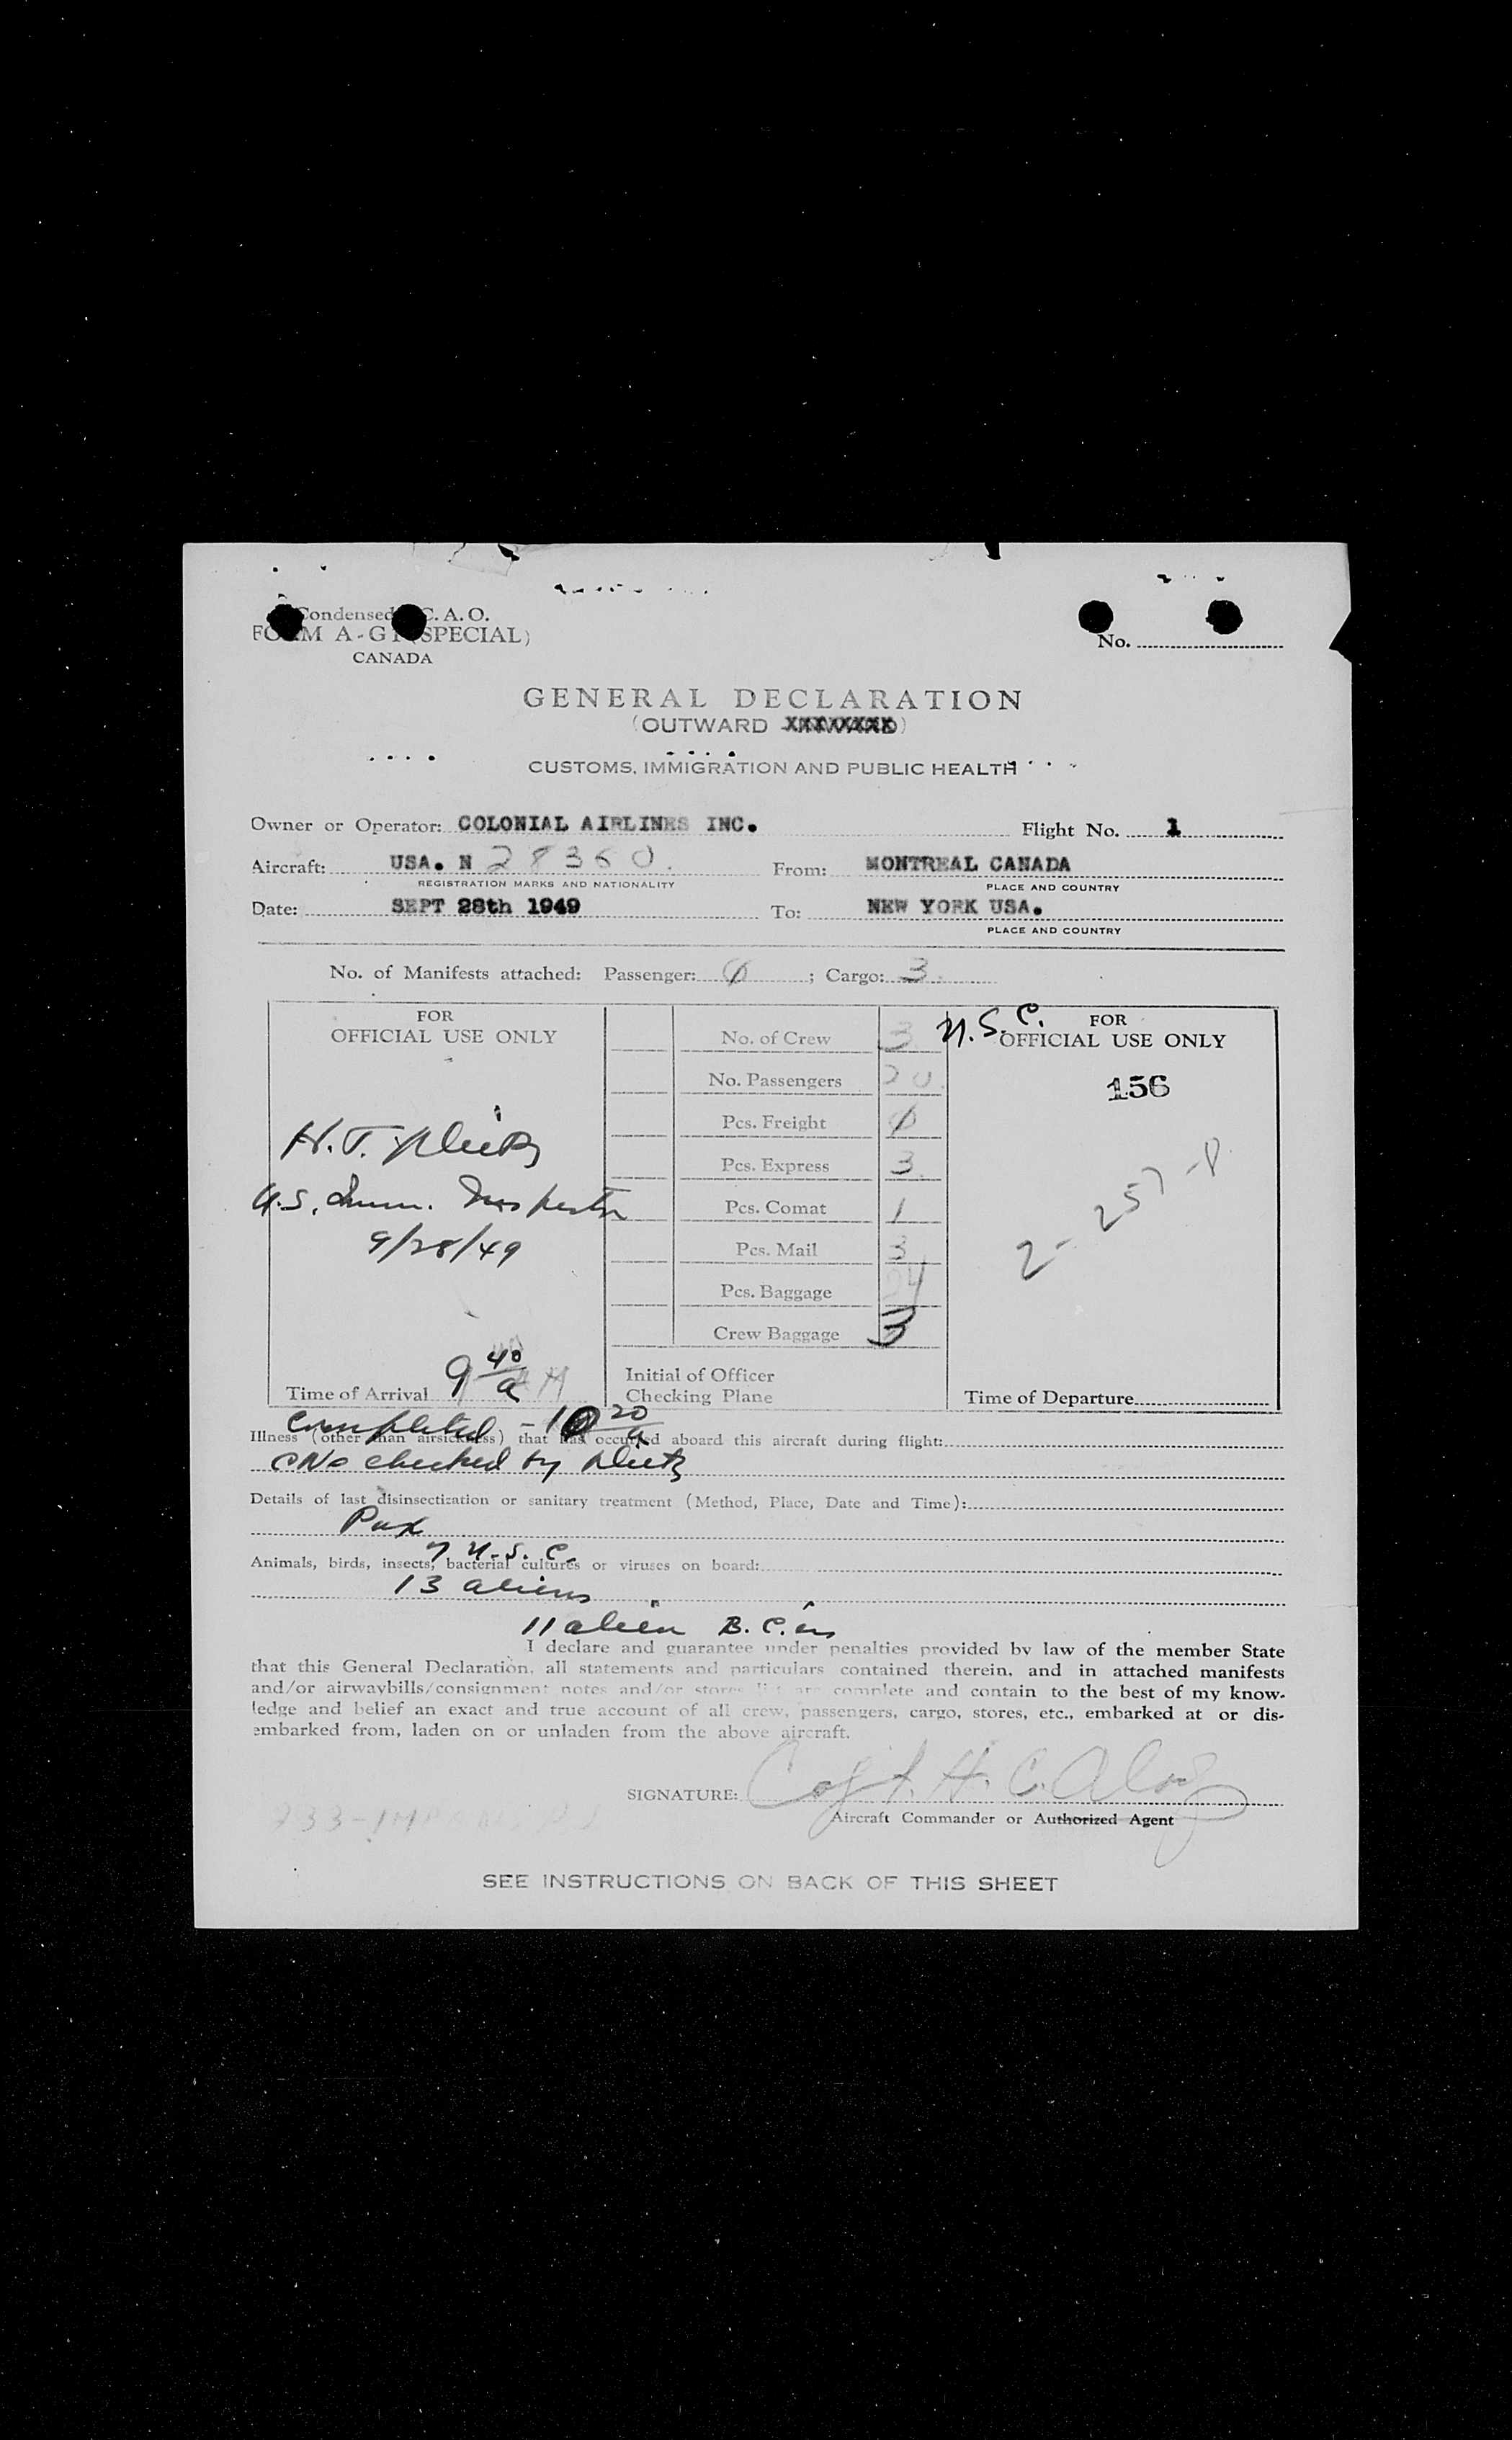 Condensed C. A. O.
FORM A-G1 (SPECIAL)
CANADA
No.
GENERAL DECLARATION
(OUTWARD XXXXXXXX)
CUSTOMS, IMMIGRATION AND PUBLIC HEALTH
Owner or Operator: COLONIAL AIRLINES INC. Flight No. 1
Aircraft: USA. N 28360. From: MONTREAL CANADA
REGISTRATION MARKS AND NATIONALITY PLACE AND COUNTRY
Date: SEPT 28th 1949 To: NEW YORK USA.
PLACE AND COUNTRY
No. of Manifests attached: Passenger: 0 ; Cargo: 3
FOR
OFFICIAL USE ONLY
H. T.
U.S. Imm. Inspector
9/28/49
Time of Arrival 9 40/a
No. of Crew 3
No. Passengers 20
Pcs. Freight 0
Pcs. Express 3
Pcs. Comat 1
Pcs. Mail 3
Pcs. Baggage 24
Crew Baggage 3
Initial of Officer
Checking Plane
U.S.C. FOR
OFFICIAL USE ONLY
156
2-257-P
Time of Departure
completed - 10 20/a
Illness (other than airsickness) that has occurred aboard this aircraft during flight:
checked by
Details of last disinsectization or sanitary treatment (Method, Place, Date and Time):
Pax
7 U.S.C.
Animals, birds, insects, bacterial cultures or viruses on board:
13 aliens
11 alien B.C.
I declare and guarantee under penalties provided by law of the member State
that this General Declaration, all statements and particulars contained therein, and in attached manifests
and/or airwaybills/consignment notes and/or stores list are complete and contain to the best of my know-
ledge and belief an exact and true account of all crew, passengers, cargo, stores, etc., embarked at or dis-
embarked from, laden on or unladen from the above aircraft.
SIGNATURE: Capt. H. C.
Aircraft Commander or Authorized Agent
SEE INSTRUCTIONS ON BACK OF THIS SHEET